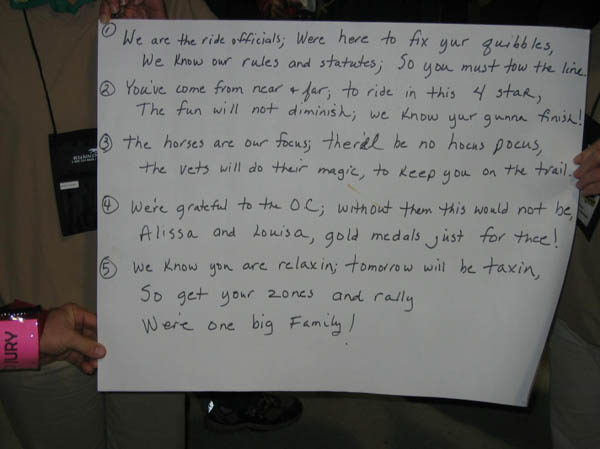 ① We are the ride officials; Were here to fix yur quibbles,
We know our rules and statutes; So you must tow the line.
② You've come from near + far; to ride in this 4 star,
The fun will not diminish; we know yur gunna finish!
③ the horses are our focus; there'll be no hocus pocus,
the vets will do their magic, to keep you on the trail.
④ We're grateful to the OC; without them this would not be,
Alissa and Louisa, gold medals just for thee!
⑤ We know you are relaxin; tomorrow will be taxin,
So get your zones and rally
We're one big Family!
JURY